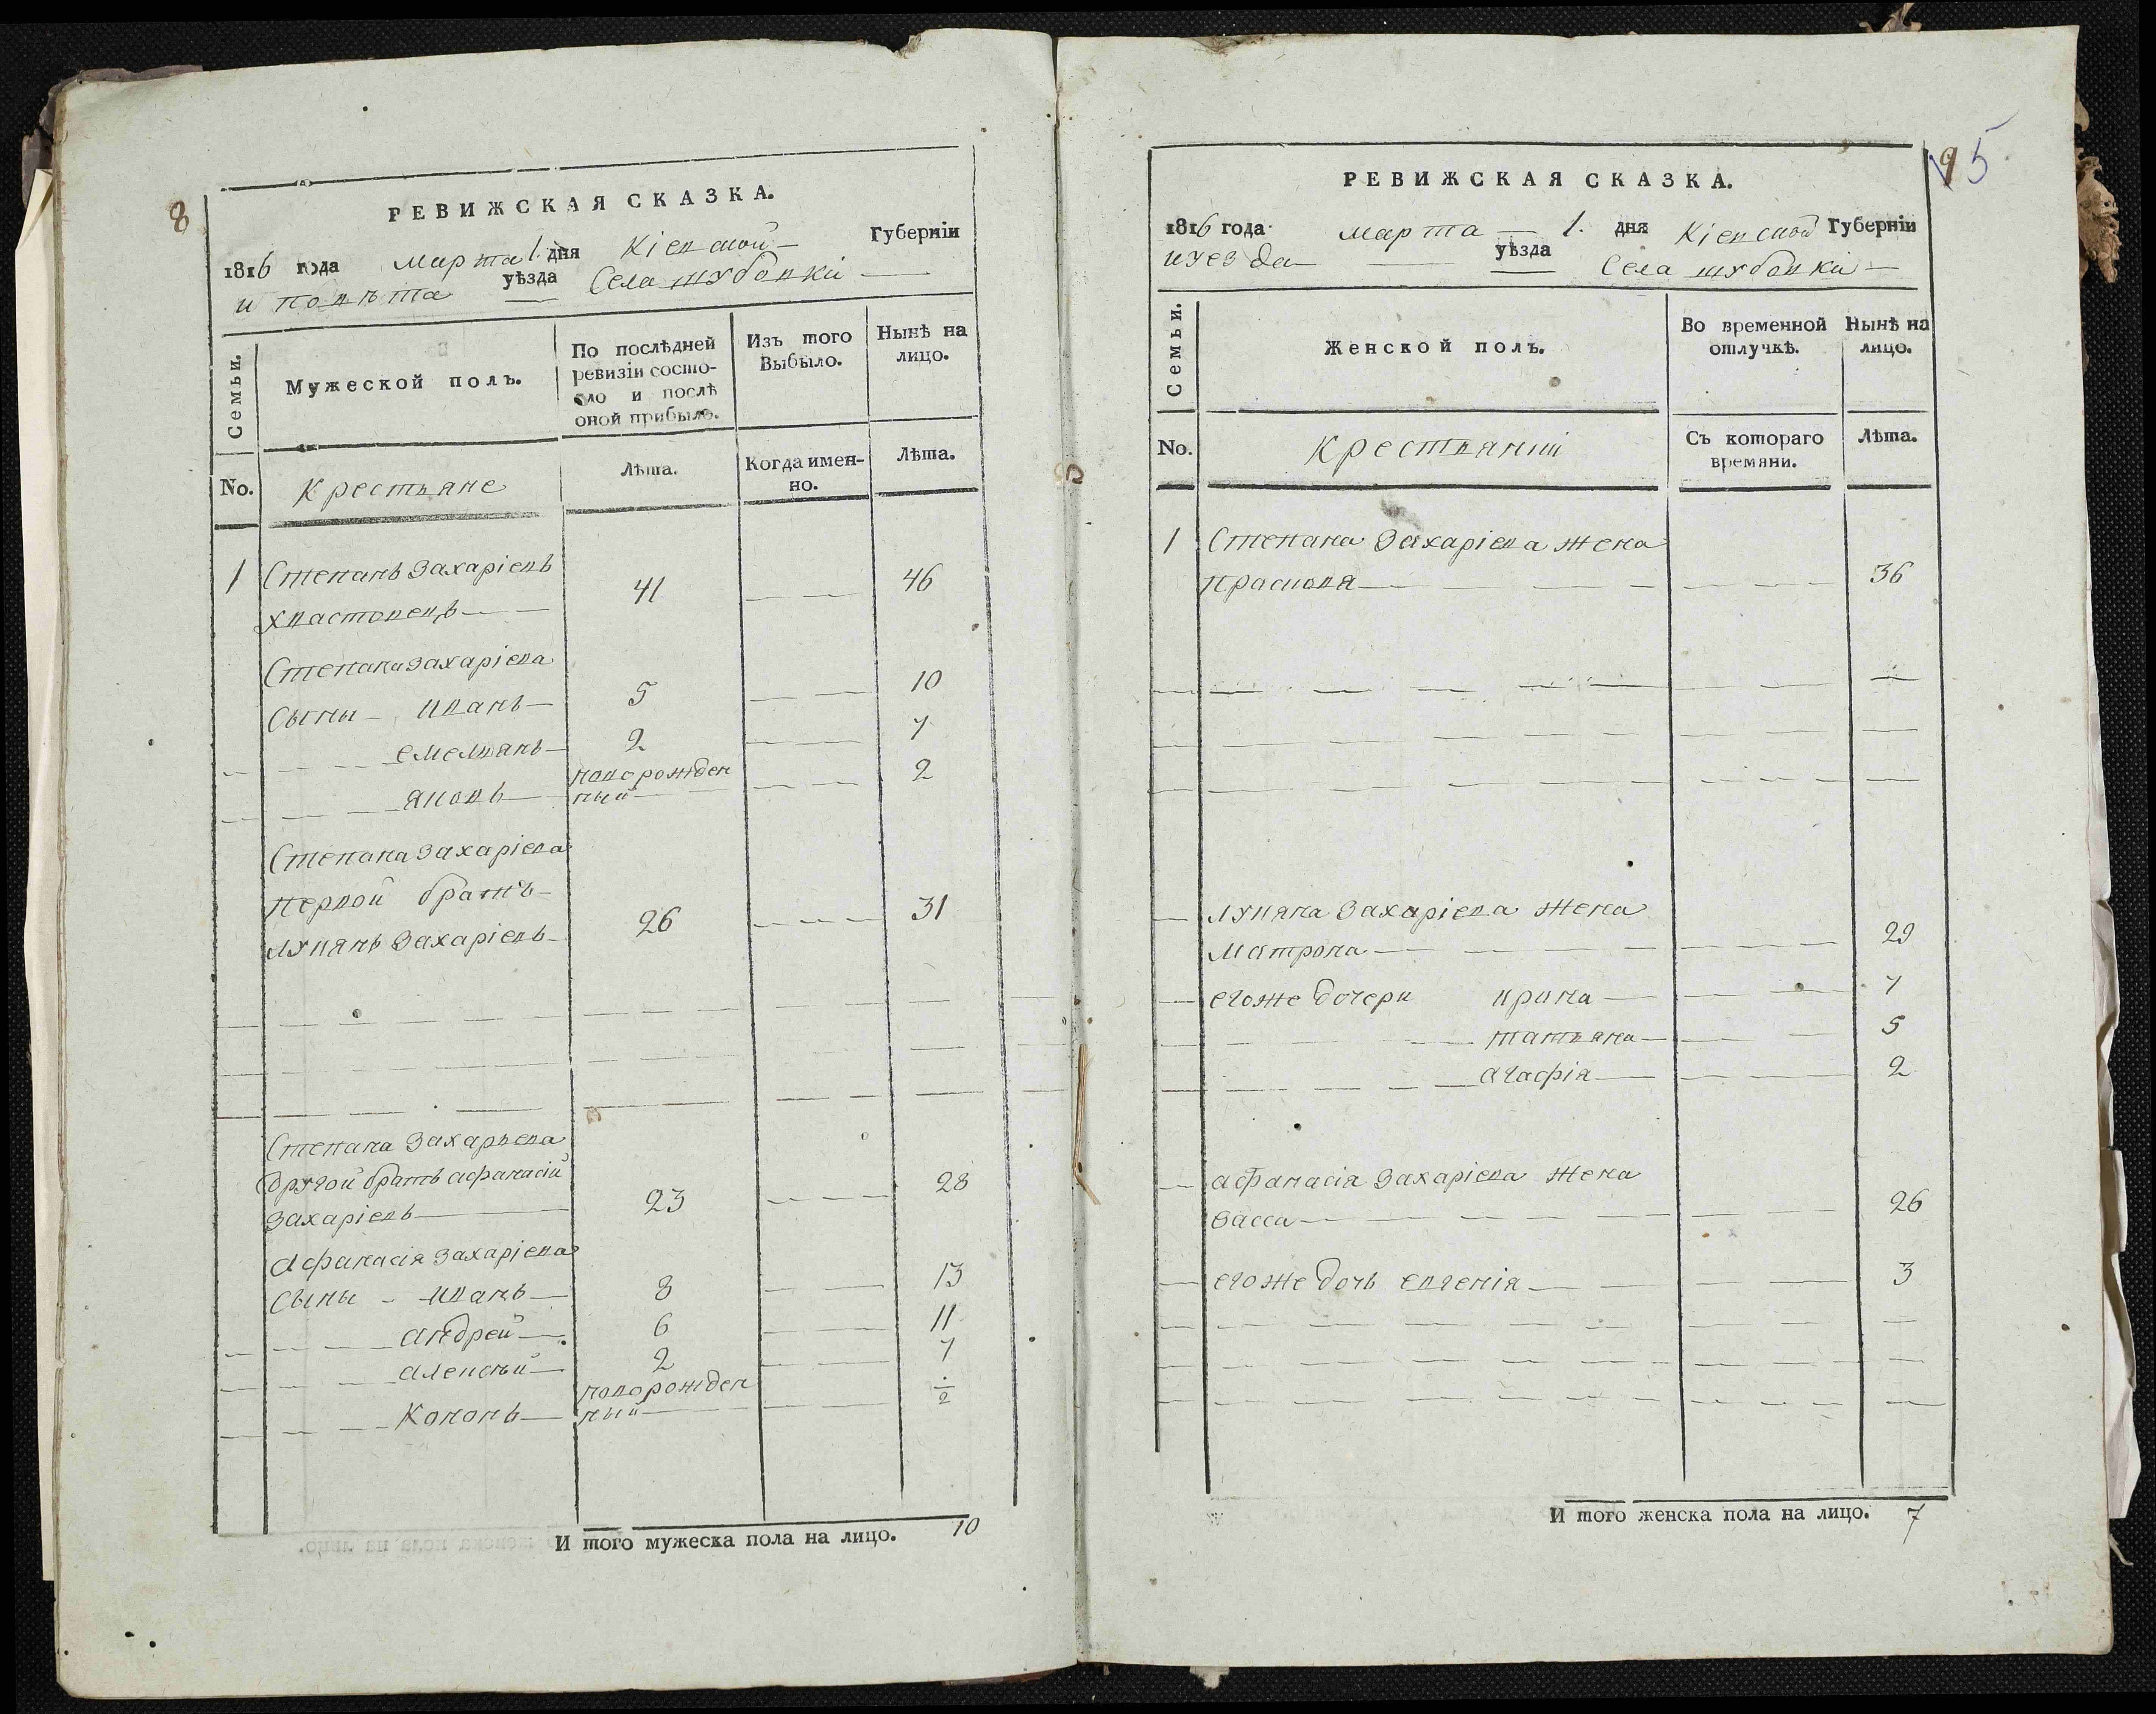 8
РЕВИЖСКАЯ СКАЗКА.
1816 года марта 1. дня Кіевской Губерніи
и повѣта уѣзда Села шубовки
Семьи.
Мужеской полъ.
По послѣдней ревизіи состояло и послѣ оной прибыло.
Изъ того Выбыло.
Нынѣ на лицо.
No.
Крестьяне
Лѣта.
Когда именно.
Лѣта.
1 Степанъ Захаріевъ
хвастовецъ 41 46
Степана захаріева
Сыны Иванъ 5 10
емельянъ 2 7
яковъ новорожденный 2
Степана Захаріева
первой братъ
лукянъ Захаріевъ 26 31
Степана Захарьева
другой братъ афанасій
Захаріевъ 23 28
Афанасія Захаріева
Сыны Иванъ 8 13
андрей 6 11
алексѣй 2 7
Кононъ новорожденный 1/2
И того мужеска пола на лицо. 10
95
РЕВИЖСКАЯ СКАЗКА.
1816 года марта 1. дня Кіевской Губерніи
иуезда уѣзда Села шубовки
Семьи.
Женской полъ.
Во временной отлучкѣ.
Нынѣ на лицо.
No.
Крестьянки
Съ котораго времяни.
Лѣта.
1 Степана Захаріева жена
прасковя 36
лукяна Захаріева жена
Матрона 29
егоже дочери ирина 7
татьяна 5
агафія 2
афанасія Захаріева жена
васса 26
егоже дочь евгенія 3
И того женска пола на лицо. 7